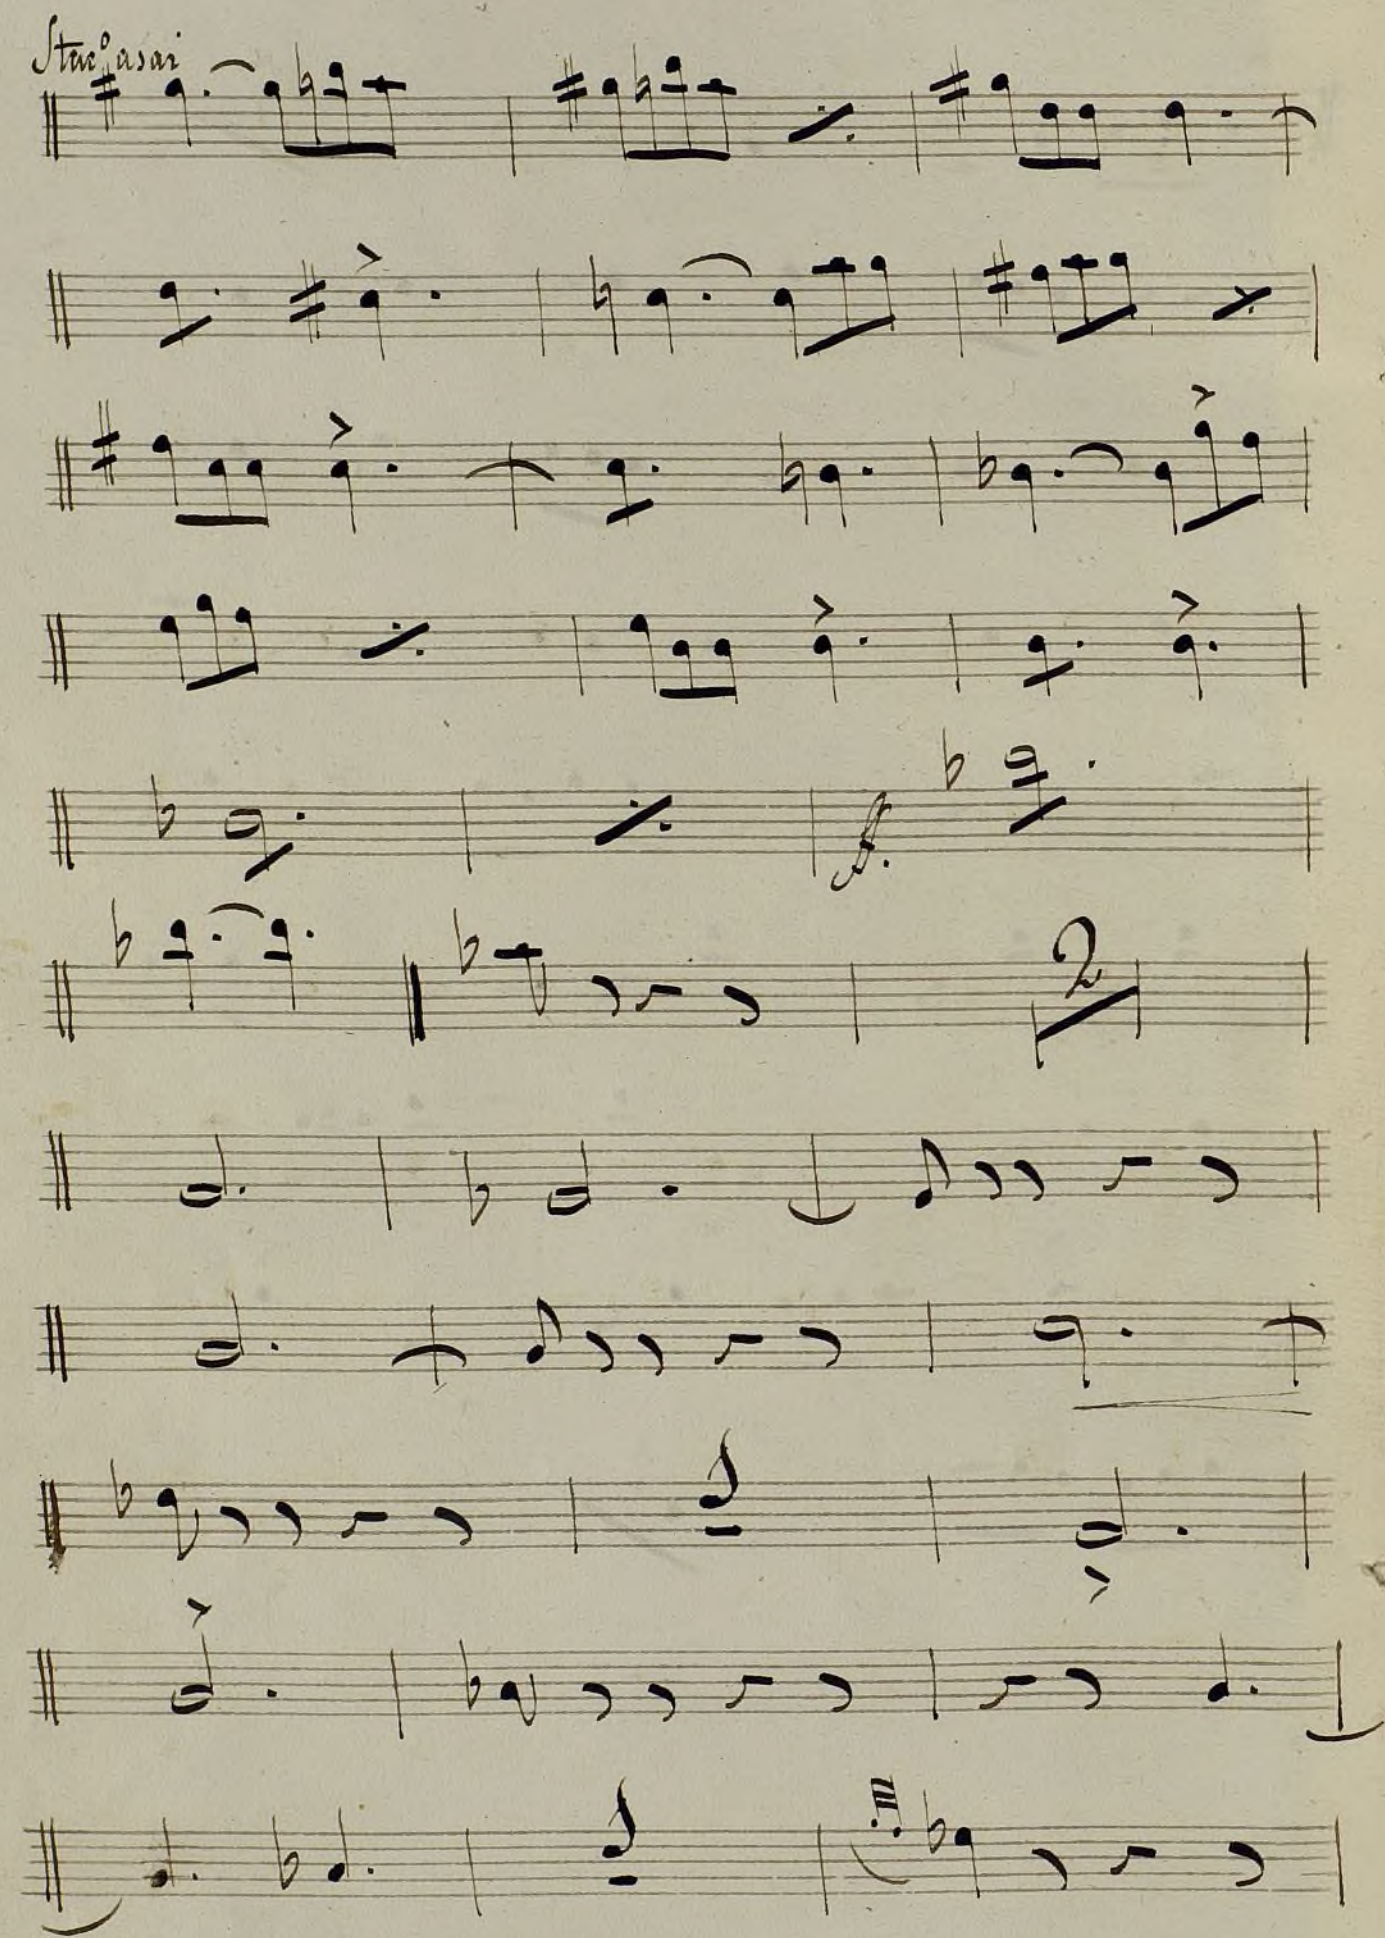 Stacº asai
ff.
2